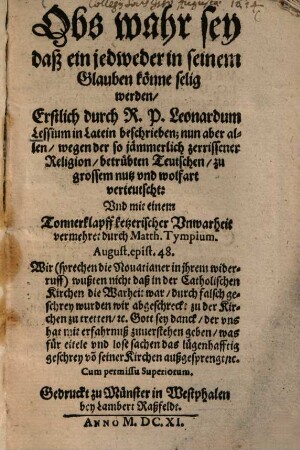 Obs wahr sey
daß ein jedweder in seinem
Glauben könne selig
werden/
Erstlich durch R. P. Leonardum
Lessium in Latein beschrieben; nun aber al-
len/ wegen der so jämmerlich zerrissener
Religion/ betrübten Teutschen/ zu
grossem nutz vnd wolfart
verteutscht:
Vnd mit einem
Tonnerklapff ketzerischer Vnwarheit
vermehrt: durch Matth. Tympium.
August. epist. 48.
Wir (sprechen die Nouatianer in jhrem wider-
ruff) wußten nicht daß in der Catholischen
Kirchen die Warheit war/ durch falsch ge-
schrey wurden wir abgeschreckt zu der Kir-
chen zu tretten/ ꝛc. Gott sey danck/ der vns
hat mit erfahrnuß zuuerstehen geben/ was
für eitele vnd lose sachen das lügenhafftig
geschrey võ seiner Kirchen außgesprengt/ ꝛc.
Cum permissu Superiorum.
Gedruckt zu Münster in Westphalen
bey Lambert Raßfeldt.
ANNO M. DC. XI.